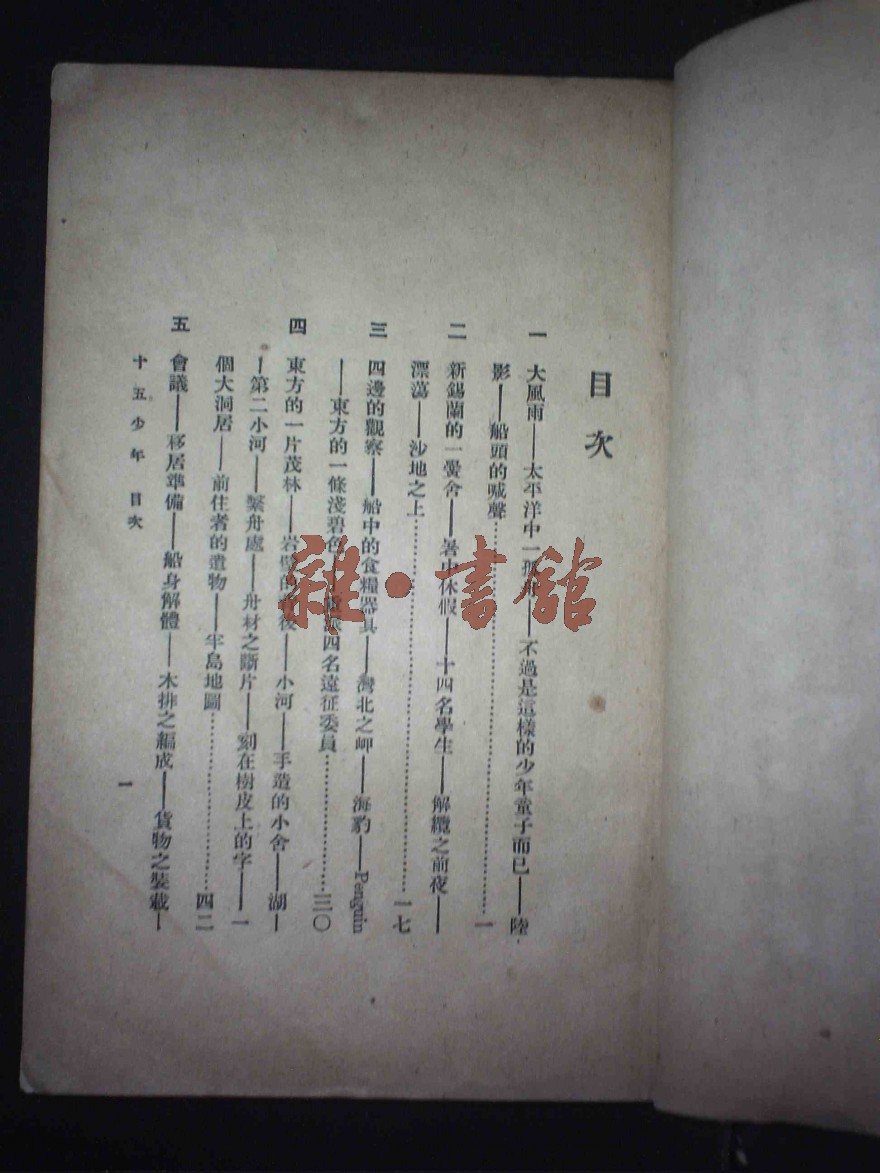 目次
一 大風雨——太平洋中一孤舟——不過是這樣的少年童子而已——陸
影——船頭的喊聲………一
二 新錫蘭的一黌舍——暑中休假——十四名學生——解纜之前夜——
漂蕩——沙地之上………一七
三 四邊的觀察——船中的食糧器具——灣北之岬——海豹——Penguin
——東方的一條淺碧色 四名遠征委員………三〇
四 東方的一片茂林——岩壁的背後——小河——手造的小舍——湖—
—第二小河——繫舟處——舟材之斷片——刻在樹皮上的字——一
個大洞居——前住者的遺物——半島地圖………四二
五 會議——移居準備——船身解體——木排之編成——貨物之裝載—
十五少年 目次
一
雜·書館